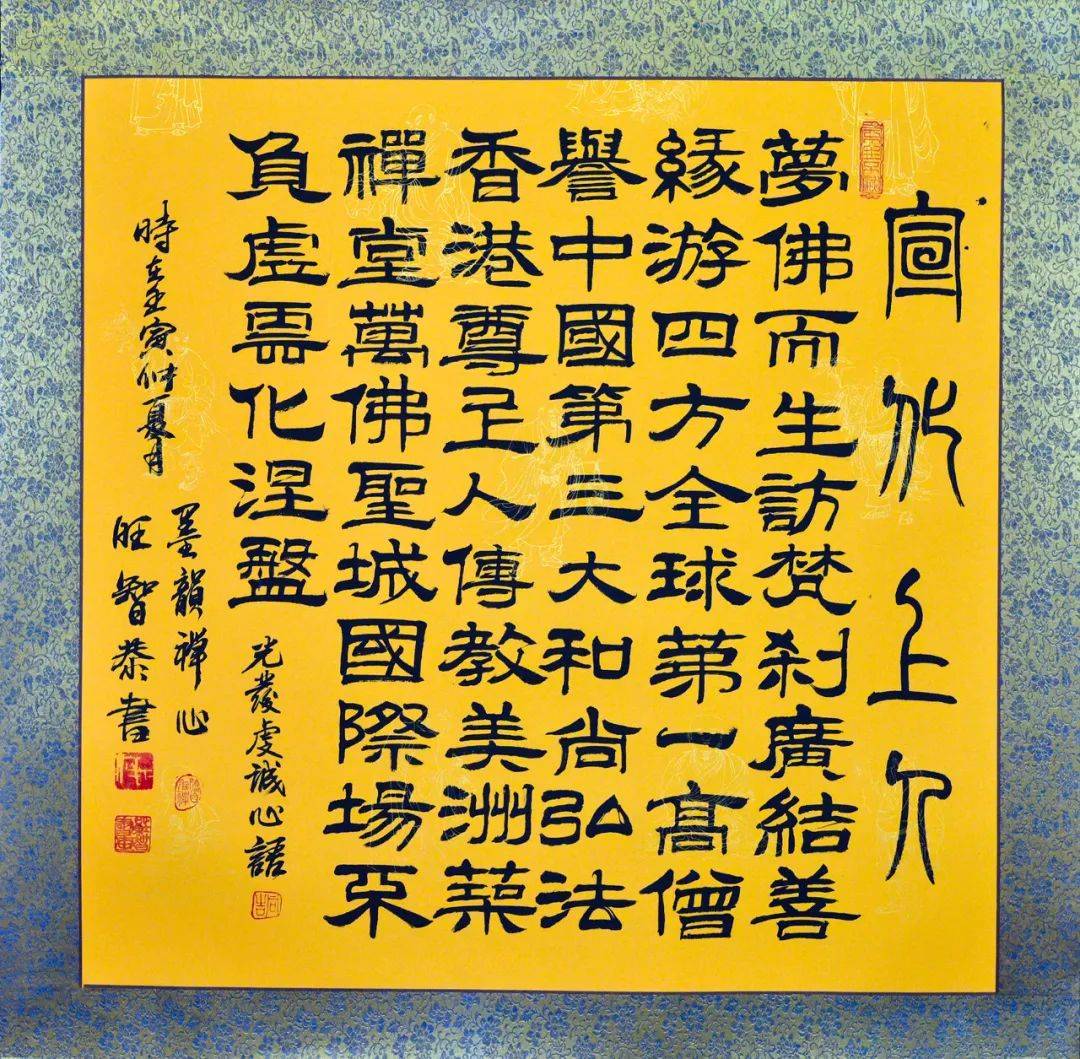 宣化上人
夢佛而生訪梵刹廣結善
緣游四方全球第一高僧
譽中國第三大和尚弘法
香港尊人傳教美洲築
禪堂萬佛聖城國際場不
負虛雲化涅盤
光發虔誠心語
時在壬寅仲夏月
墨韻禪心
旺智恭書